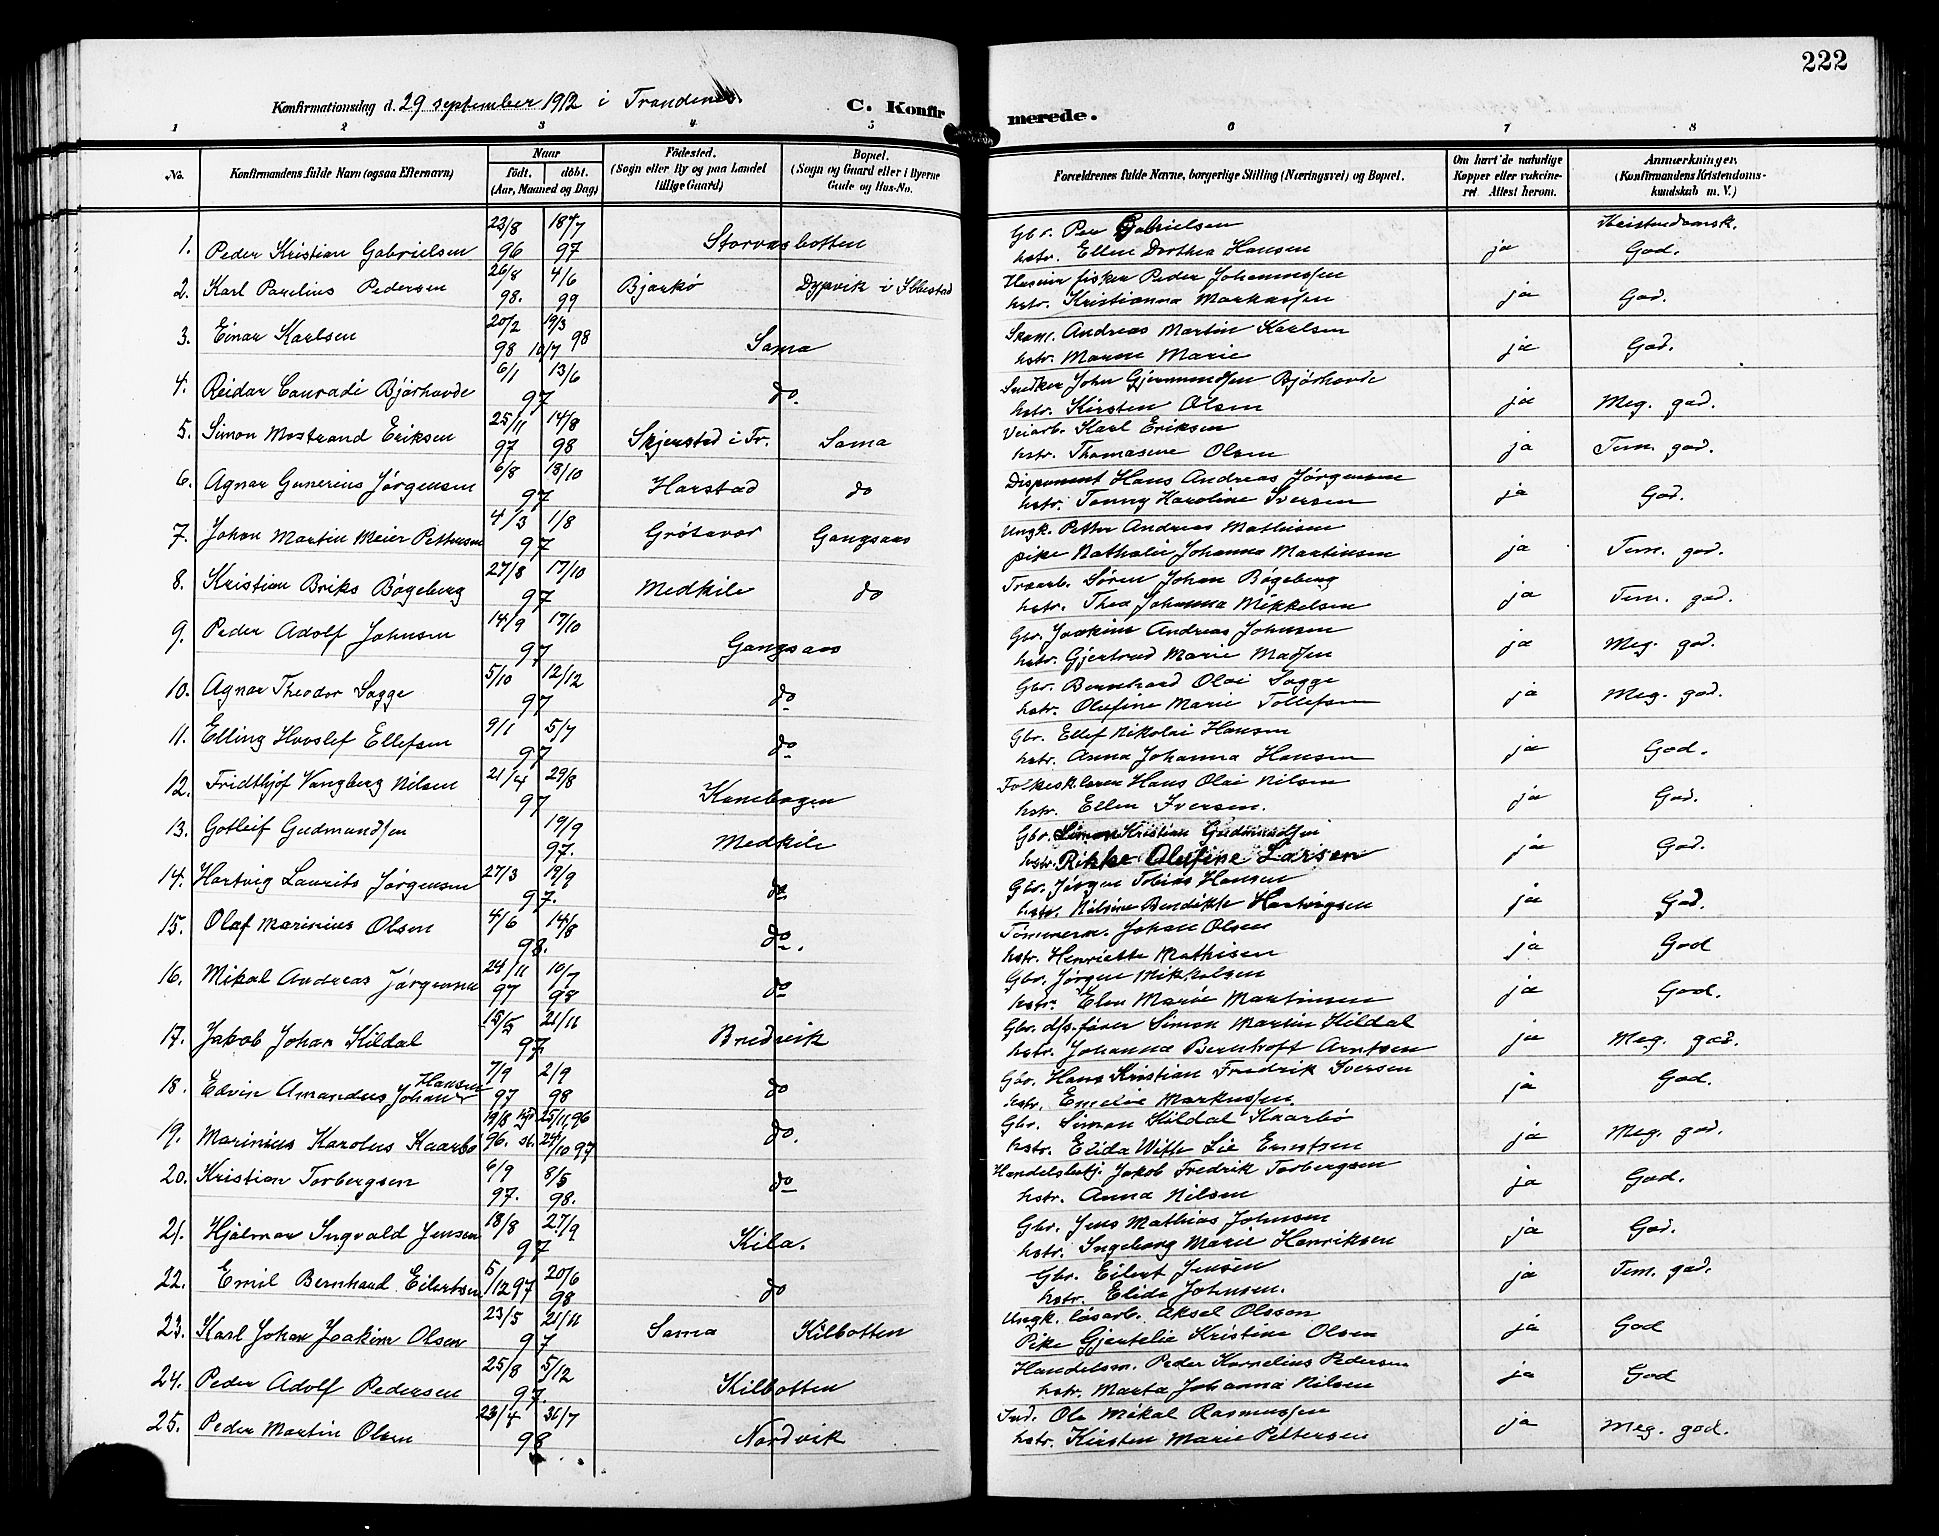 222
Konfirmationsdag d. 29 september 1912 i Trondenes. C. Konfirmerede.
1 2 3 4 5 6 7 8
No. Konfirmandens fulde Navn (ogsaa Efternavn) Naar født. døbt. (Aar, Maaned og Dag) Födested. (Sogn eller By og paa Landet tillige Gaard) Bopæl. (Sogn og Gaard eller i Byerne Gade og Hus-No. Forældrenes fulde Navne, borgerlige Stilling (Næringsvei) og Bopæl. Om havt de naturlige Kopper eller vakcineret Attest herom. Anmærkninger. (Konfirmandens Kristendomskundskab m. V.)
Kristendomsk.
1. Peder Kristian Gabrielsen 22/8 96 18/7 97 Storvasbotten Gbr. Per Gabrielsen hstr. Ellen Dorthea Hansen ja God.
2. Karl Parelius Pedersen 26/8 98. 4/6 99 Bjarkö Dypvik i Ibbestad Huseier fisker Peder Johannessen hstr. Kristianna Markussen ja God.
3. Einar Karlsen 20/2 98 19/3 10/7 98 Sama Andreas Martin Karlsen hstr. Marie ja God.
4. Reidar Conradi Bjørhovde 6/1 13/6 97 do. Snedker John Gjermundsen Bjørhovde hstr. Kirsten Olsen ja Meg. god.
5. Simon Mostrand Eriksen 25/11 97 14/8 98 Skjerstad i Tr. Sama Veiarb. Karl Eriksen hstr. Thomasine Olsen ja Tem. god.
6. Agnar Gunerius Jørgensen 6/8 18/10 97 Harstad do Disponent Hans Andreas Jørgensen hstr. Tonny Karoline Iversen ja God.
7. Johan Martin Meier Pettersen 4/3 1/8 97 Grötavær Gangsaas Ungk. Petter Andreas Mathisen pike Nathalie Johanna Martinsen ja Tem. god.
8. Kristian Briks Bøgeberg 27/8 17/10 97 Medkile do Søren Johan Bøgeberg hstr. Thea Johanna Mikkelsen ja Tem. god.
9. Peder Adolf Johnsen 14/9 17/10 97 Gangsaas Gbr. Joakim Andreas Johnsen hstr. Gjertrud Marie Madsen ja Meg. god.
10. Agnar Theodor Sagge 5/10 12/12 97 do Gbr. Bernhard Olai Sagge hstr. Olufine Marie Tollefsen ja Meg. god.
11. Elling Hovslef Ellefsen 9/1 5/7 97 do Gbr. Ellef Nikolai Hansen hstr. Anna Johanna Hansen ja God.
12. Fridthjof Vangberg Nilsen 21/4 29/8 97 Kanebogen Folkesk.lærer Hans Olai Nilsen hstr. Ellen Iversen. ja God.
13. Gotleif Gudmundsen 19/9 97. Medkile Gbr. Simon Kristian Gudmundsen hstr. Rikke Olufine Larsen ja God.
14. Hartvig Laurits Jørgensen 27/3 19/9 97. do Gbr. Jørgen Tobias Hansen hstr. Nilsine Bendikte Hartvigsen ja God.
15. Olaf Marinius Olsen 4/6 14/8 98. do. Tömmerm. Johan Olsen hstr. Henriette Mathisen ja God
16. Mikal Andreas Jørgensen 24/11 97 10/7 98 do Gbr. Jørgen Mikkalsen hstr. Elen Marie Martinsen ja God.
17. Jakob Johan Kildal 15/5 21/11 97 Bredvik Gbr. d/s.fører Simon Martin Kildal hstr. Johanna Bernhoft Arntsen ja Meg. god.
18. Edvin Amandus Johan Hansen 7/9 97 2/9 98 do Gbr. Hans Kristian Fredrik Iversen hstr. Emelie Markussen. ja God.
19. Marinius Karolus Kaarbø 19/8 96. 25/11 96 st. 24/10 97 do. Gbr. Simon Kildal Kaarbø hstr. Elida Witte Lie Erntsen ja Meg. god.
20. Kristian Torbergsen 6/9 97. 8/5 98. do Handelsbetj. Jakob Fredrik Torbergsen hstr. Anna Nilsen ja God.
21. Hjalmar Ingvald Jensen 18/8 27/9 97 Kila. Gbr. Jens Mathias Johnsen hstr. Ingeborg Marie Henriksen ja God.
22. Emil Bernhard Eilertsen 5/12 97 20/6 98 do Gbr. Eilert Jensen hstr. Elida Johnsen. ja Tem. god.
23. Karl Johan Joakim Olsen 23/5 21/11 97 Sama Kilbotten Ungk. løsarb. Aksel Olsson Pike Gjertelie Kristine Olsen ja God
24. Peder Adolf Pedersen 25/8 5/12 97. Kilbotten Handelsm. Peder Kornelius Pedersen hstr. Marta Johanna Nilsen ja God
25. Peder Martin Olsen 23/4 31/7 98 Nordvik Ind. Ole Mikal Rasmussen hstr. Kirsten Marie Pettersen ja Meg. god.